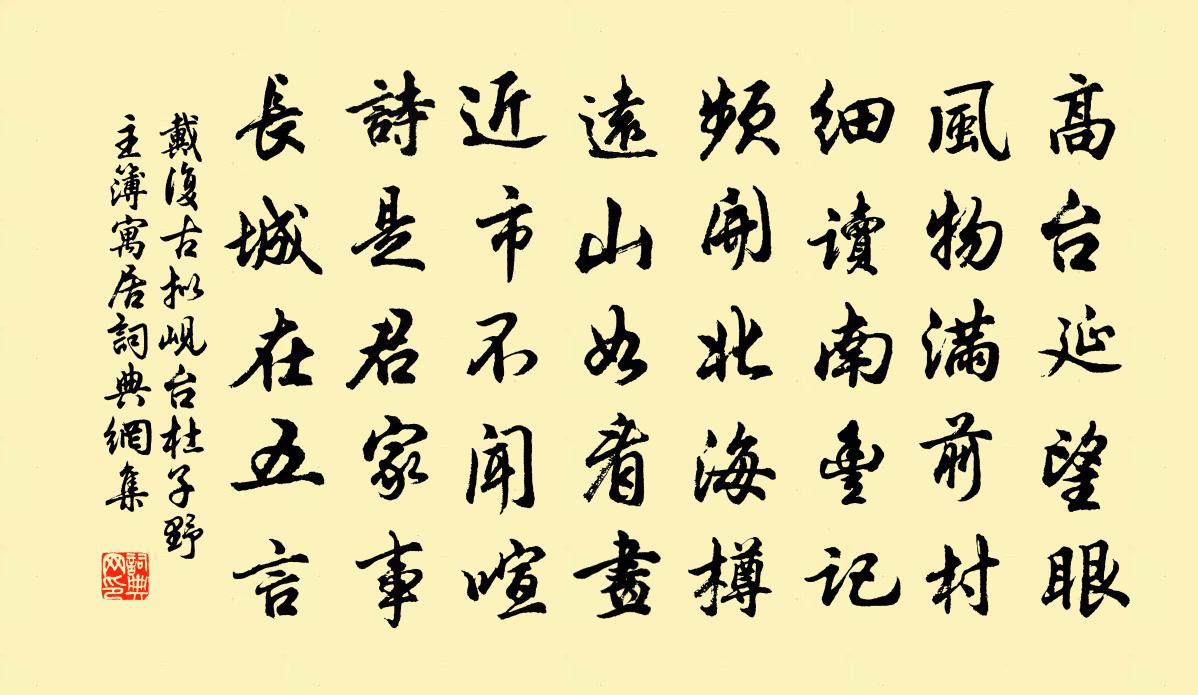 高台延望眼
風物滿前村
細讀南豐記
頻開北海樽
遠山如看畫
近市不聞喧
詩是君家事
長城在五言
戴復古拟峴台杜子野
主簿寓居詞典網集
詞典
网印